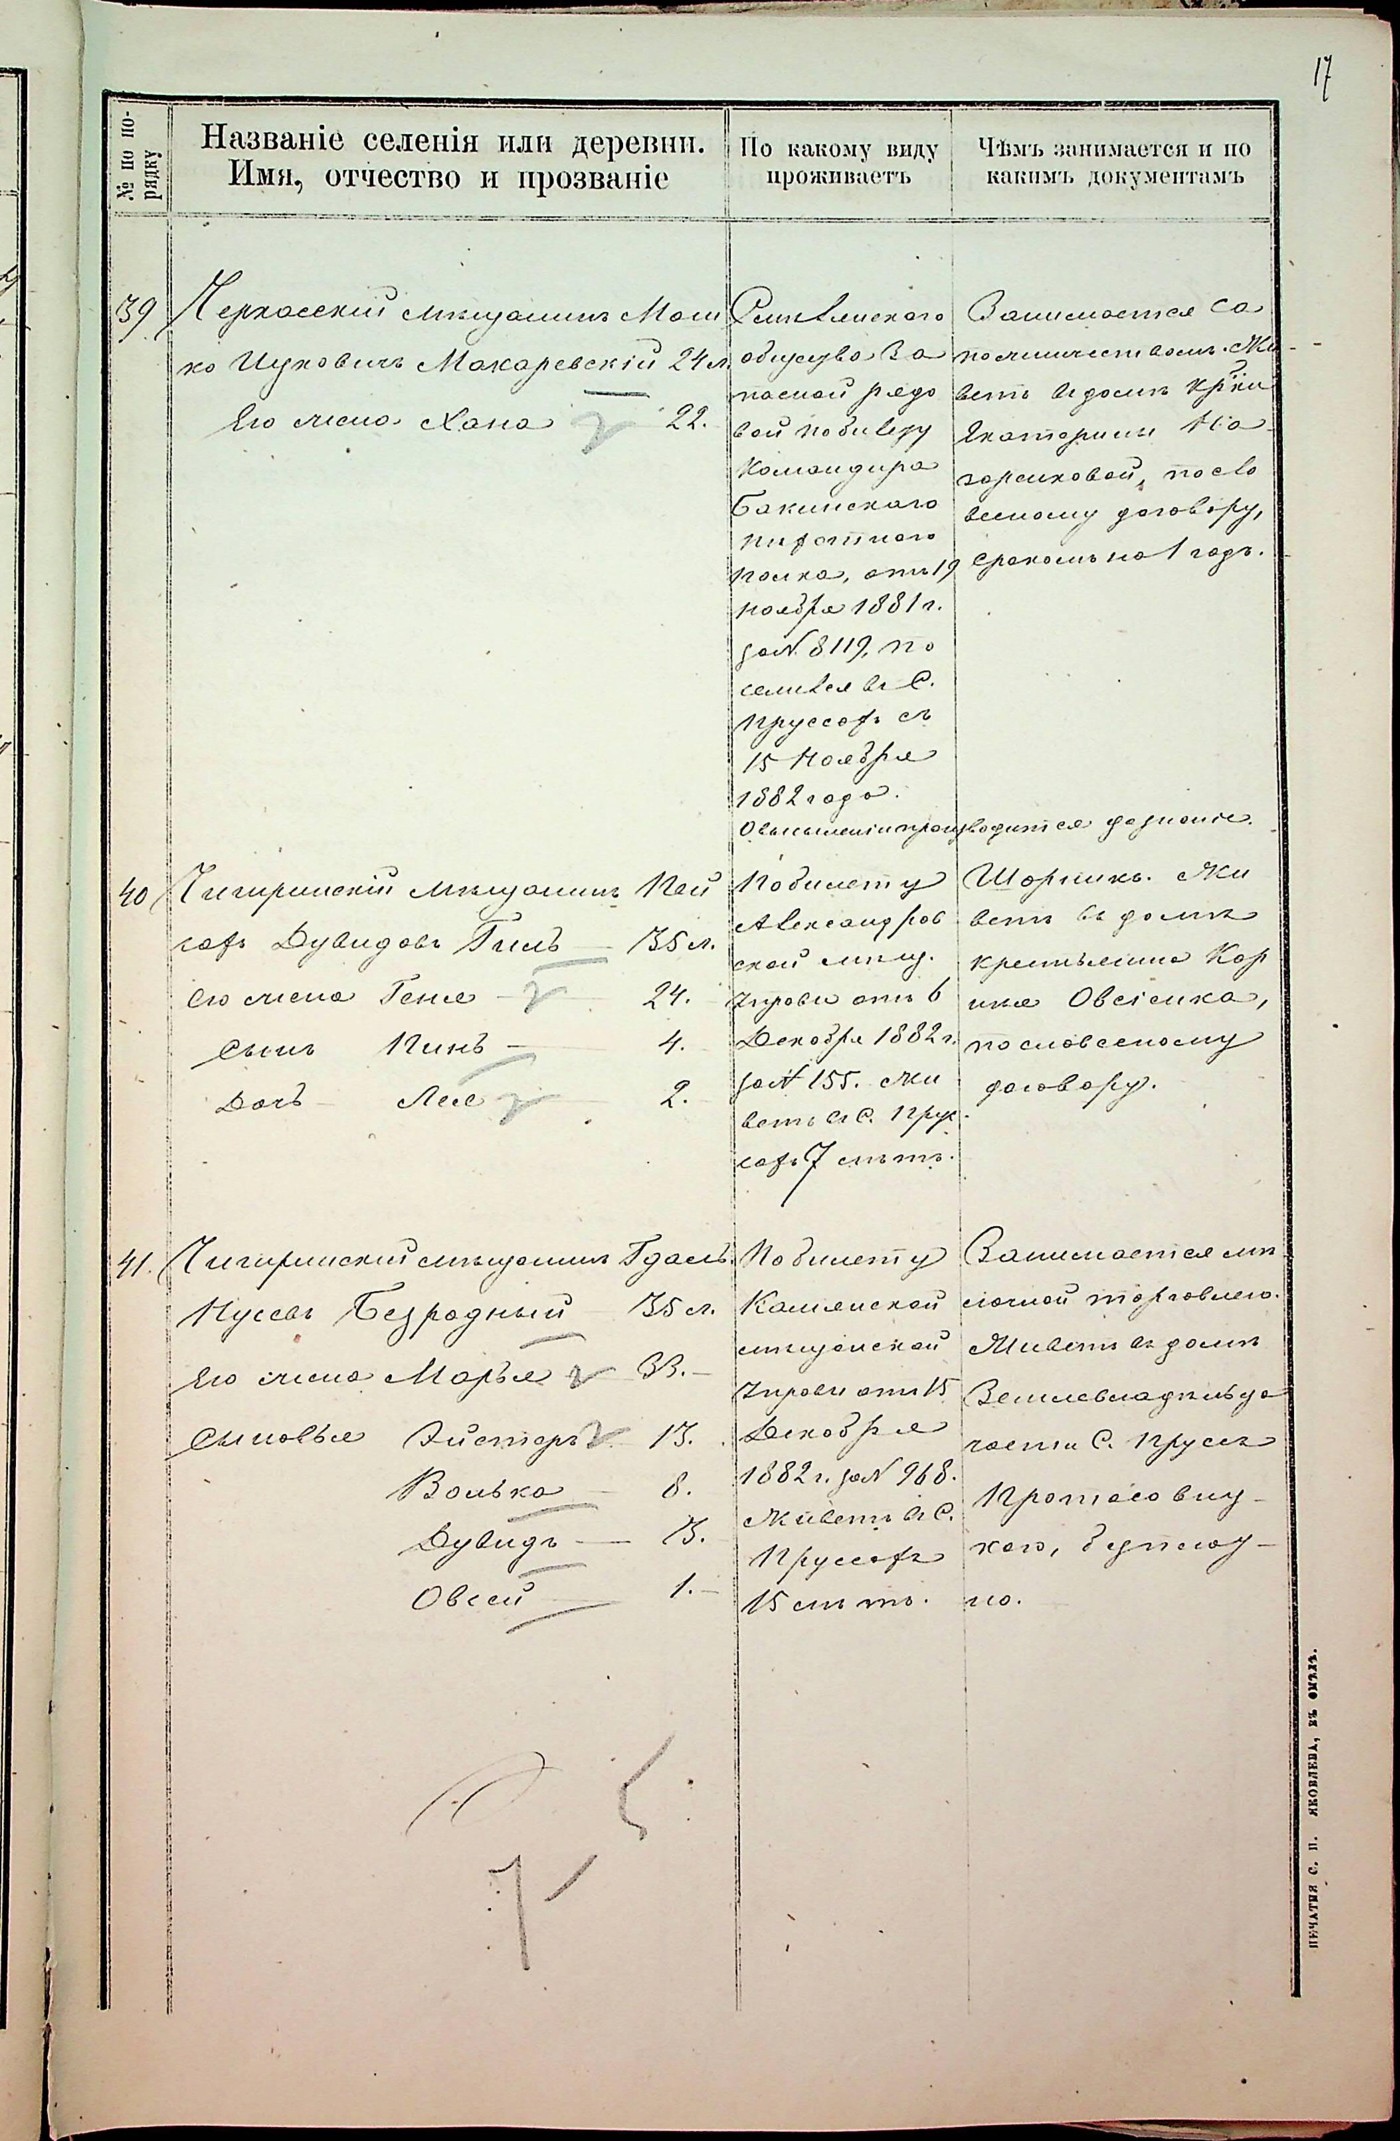 17
№ по по-
рядку
Названіе селенія или деревни.
Имя, отчество и прозваніе
По какому виду
проживаетъ
Чѣмъ занимается и по
какимъ документамъ
39
Черкасскій мѣщанинъ Мош
ко Ицковичъ Макаревскій 24 л.
Его жена Хана 22.
Смѣлянскаго
общества За
пасной рядо
вой по билету
Командира
Бакинскаго
пѣхотнаго
полка, отъ 19
ноября 1881 г.
за N. 8119, по
селился въ С.
Пруссахъ съ
15 Ноября
1882 года.
Занимается са
пожничествомъ. Жи
ветъ въ домѣ кр-ки
Екатерины На
горниковой, по сло
весному договору,
срокомъ на 1 годъ.
О выселеніи производится дознаніе.
40
Чигиринскій мѣщанинъ Пей
сахъ Дувидовъ Гиль — 35 л.
Его жена Геня — 24.
Сынъ Пинъ — 4.
Дочь — Лея 2.
По билету
Александров
ской мѣщ.
Управы отъ 6
Декабря 1882 г.
за N 155. Жи
ветъ въ С. Прус
сахъ 7 лѣтъ.
Шорникъ. Жи
ветъ въ домѣ
крестьянина Кор
нія Овсіенка,
по словесному
договору.
41.
Чигиринскій мѣщанинъ Гдаль
Нусевъ Безродный 35 л.
Его жена Марья 33. —
Сыновья Эйстеръ 13.
Волько — 8.
Дувидъ — 3.
Овсей 1. —
По билету
Камянской
мѣщанской
Управы отъ 15
Декабря
1882 г. за N 968.
Живетъ въ С.
Пруссахъ
15 лѣтъ.
Занимается мѣ
лочной торговлею.
Живетъ въ домѣ
Землевладѣльца
части С. Прусъ
Протасовиц-
каго, безплат-
но.
ПЕЧАТНЯ С. П. ЯКОВЛЕВА, ВЪ СМѢЛѢ.